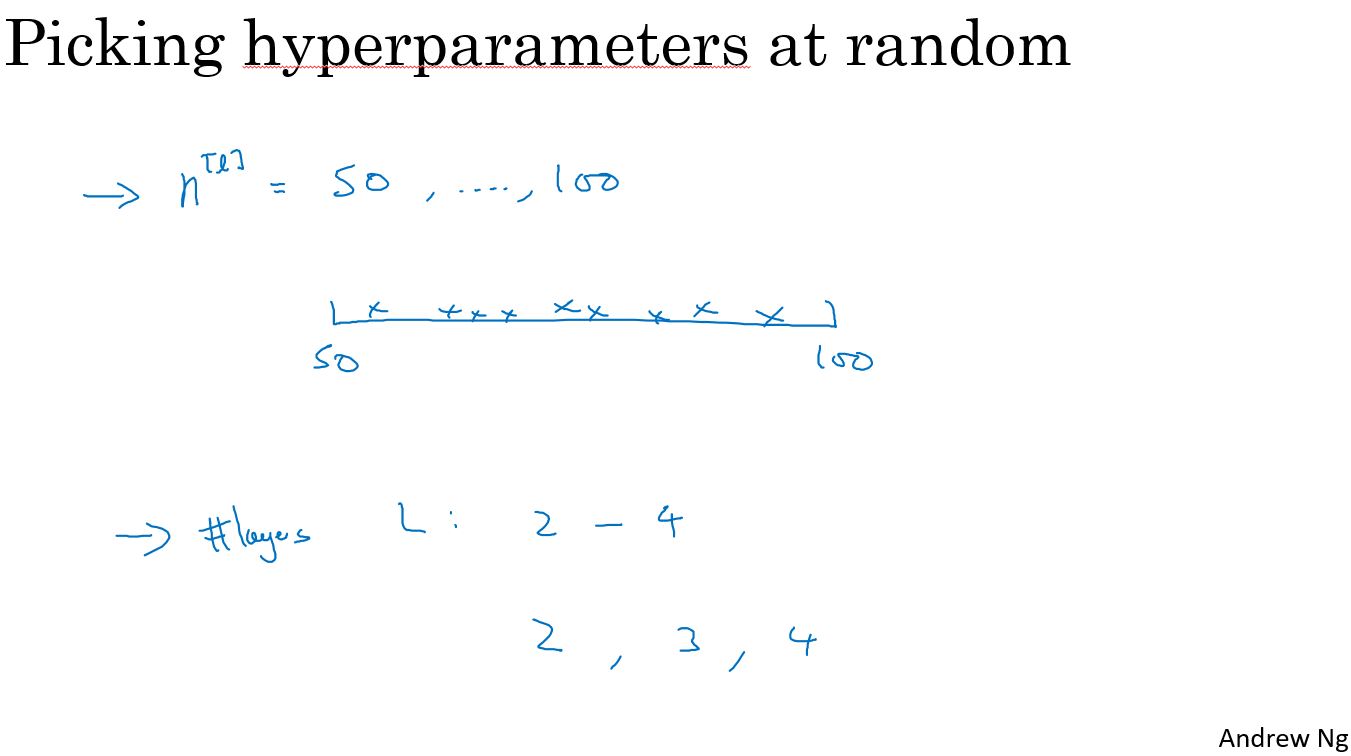 Picking hyperparameters at random
→ n[l] = 50 , ...., 100
50 100
→ #layers L : 2 - 4
2 , 3 , 4
Andrew Ng